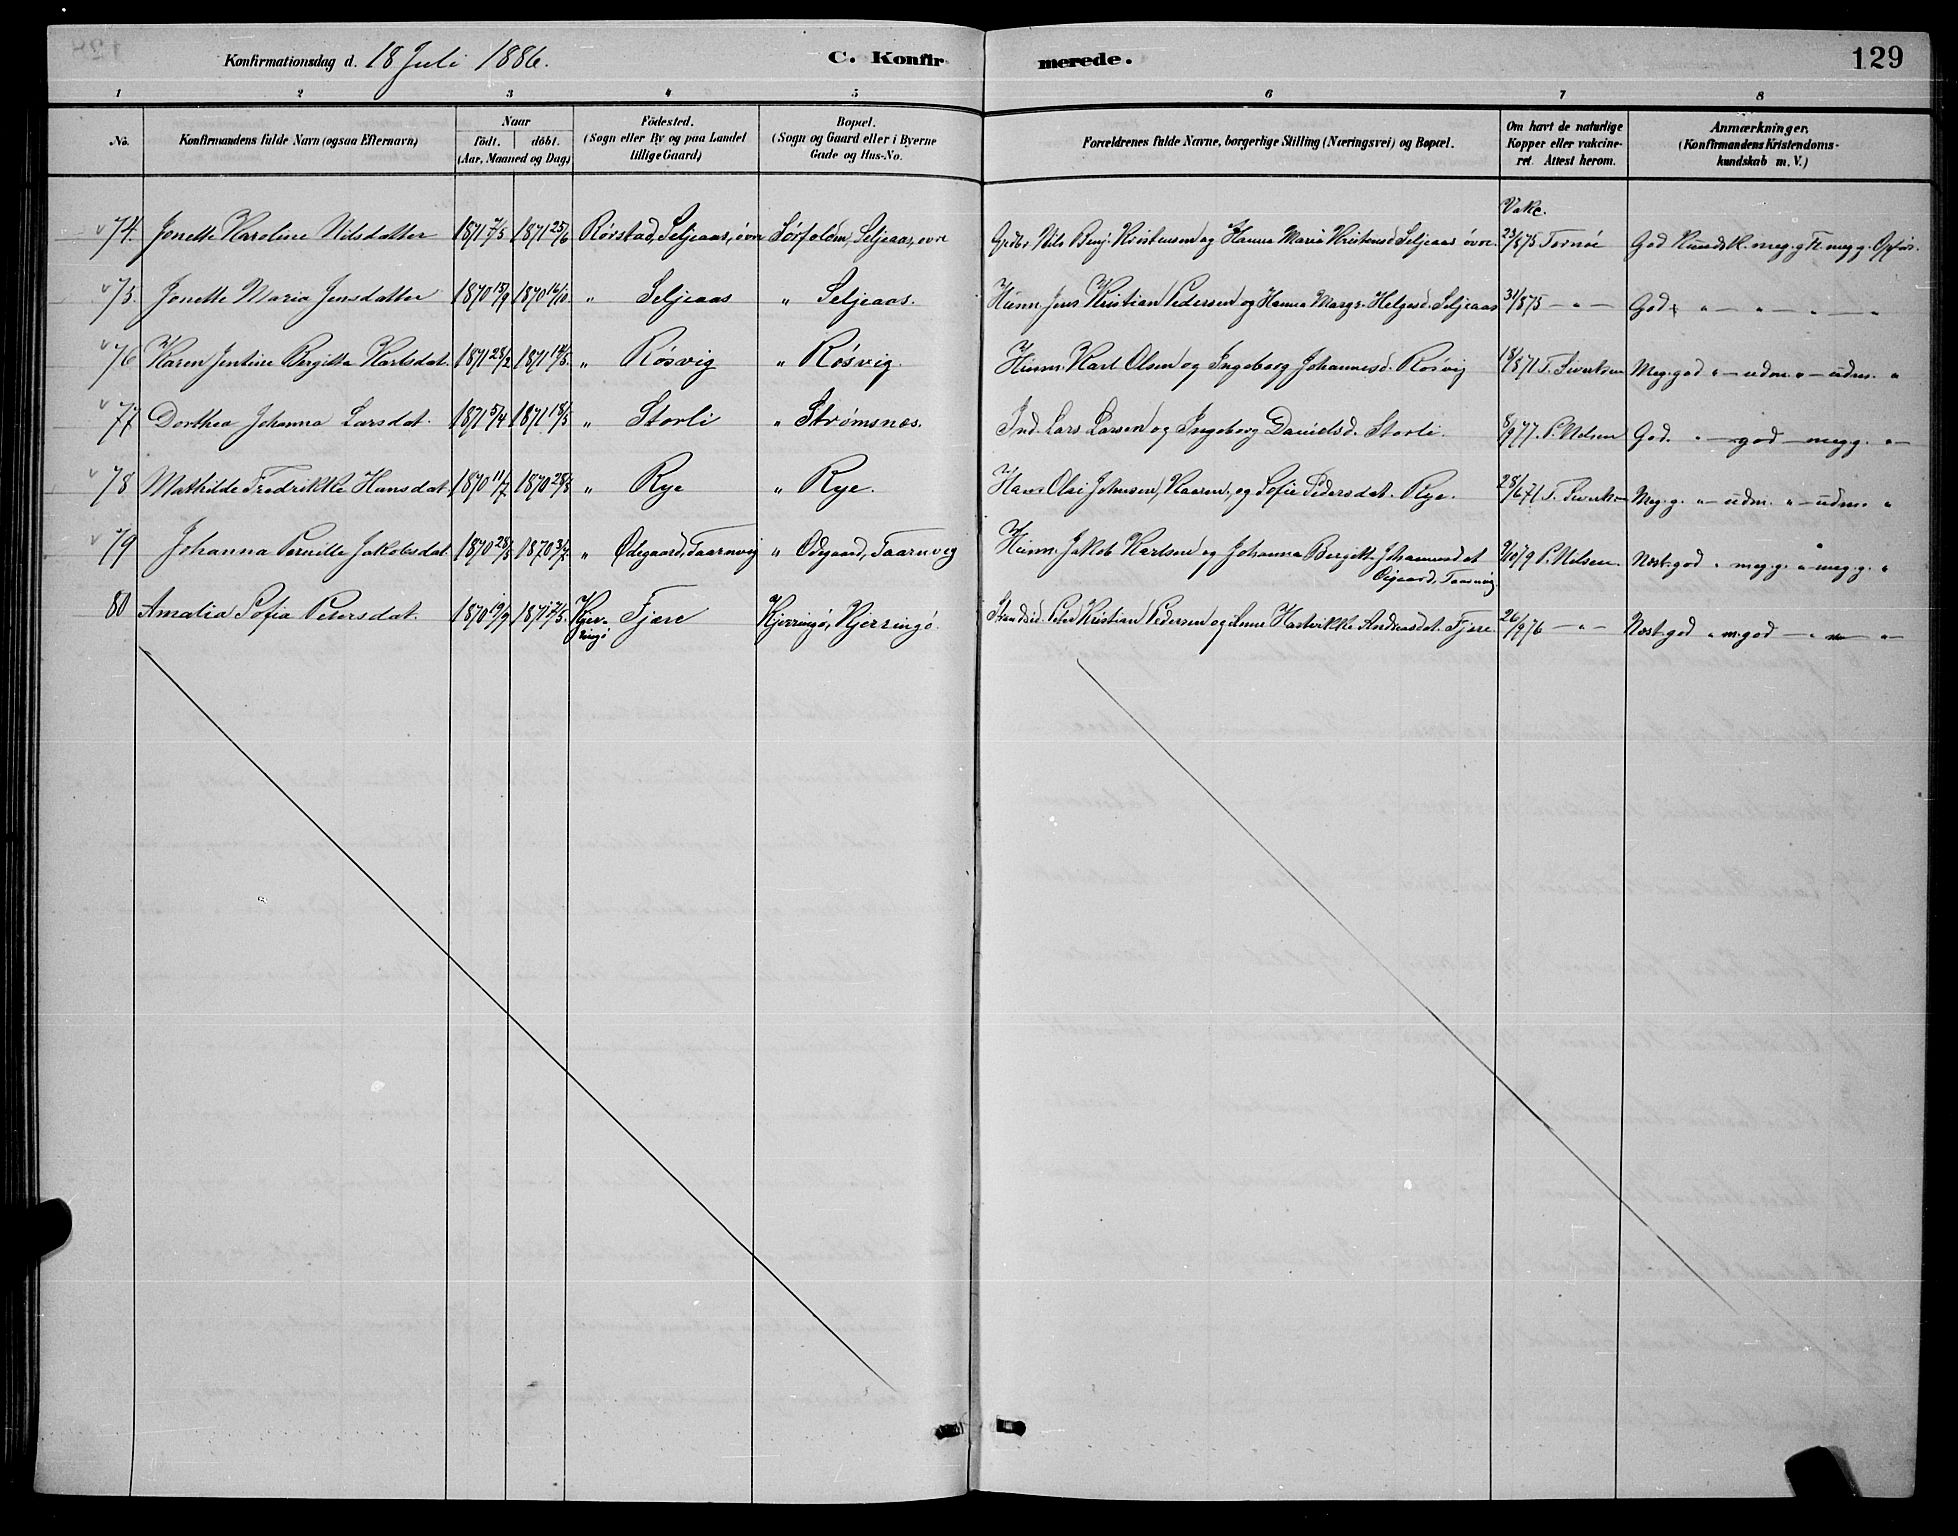 Konfirmationsdag d. 18 Juli 1886. C. Konfirmerede. 129
1 2 3 4 5 6 7 8
No. Konfirmandens fulde Navn (ogsaa Efternavn) Naar födt. döbt. (Aar, Maaned og Dag) Födested. (Sogn eller By og paa Landet tillige Gaard) Bopæl. (Sogn og Gaard eller i Byerne Gade og Hus-No. Forældrenes fulde Navne, borgerlige Stilling (Næringsvei) og Bopæl. Om havt de naturlige Kopper eller vakcineret. Attest herom. Anmærkninger. (Konfirmandens Kristendomskundskab m. V.)
Vakc.
74. Jonette Karoline Nilsdatter 1871 7/5 1871 25/6 Rørstad, Seljeaas, øvre Sørfolden, Seljeaas, øvre Grdbr. Nils Benj. Kristensen og Hanna Maria Kristensd. Seljeaas øvre. 23/875 Tornöe God Kundsk. meg. g. Fl. meg g. Opførs.
75. Jonette Maria Jensdatter 1870 15/9 1870 16/10 " Seljeaas " Seljeaas. Husm. Jens Kristian Pedersen og Hanna Margr. Helgesd. Seljeaas 31/875 — " — God " — " — " — " — "
76 Karen Jentine Bergitta Karlsdat. 1871 28/2 1871 14/5 " Røsvig " Røsvig. Husm. Karl Olsen og Ingeborg Johannesd. Røsvig 18/871 T. Siverksen Meg. god " — udm. " — udm. "
77 Dorthea Johanna Larsdat. 1871 5/4 1871 18/5 " Storli " Strømsnes. Ind. Lars Larsen og Ingeborg Danielsd. Storli. 8/977. P. Nelsen God. " — god — meg. g. " —
78 Mathilde Fredrikke Hansdat. 1870 11/7 1870 28/8 " Rye " Rye. Hans Olai Johnsen, Kaaren., og Sofie Pedersdat. Rye. 28/671. T. Siverksen Meg. g. " — udm. " — udm. "
79 Johanna Pernille Jakobsdat. 1870 28/5 1870 3/7 " Ødegaard, Taarnvig " Ødegaard, Taarnvig Husm. Jakob Karlsen og Johanna Bergitte Johannesdat 9/1079 P. Nelsen. Næst. god " meg. g. " meg. g. "
Øigaard, Taarnvig
80 Amalia Sofia Petersdat. 1870 19/9 1871 2/5 Kjerringö Fjære Kjerringö, Kjerringö. Strandsid. Peter Kristian Pedersen og Hartvikke Andreasdat. Fjære 26/976 — " — Næst. god " m. god — " — " —